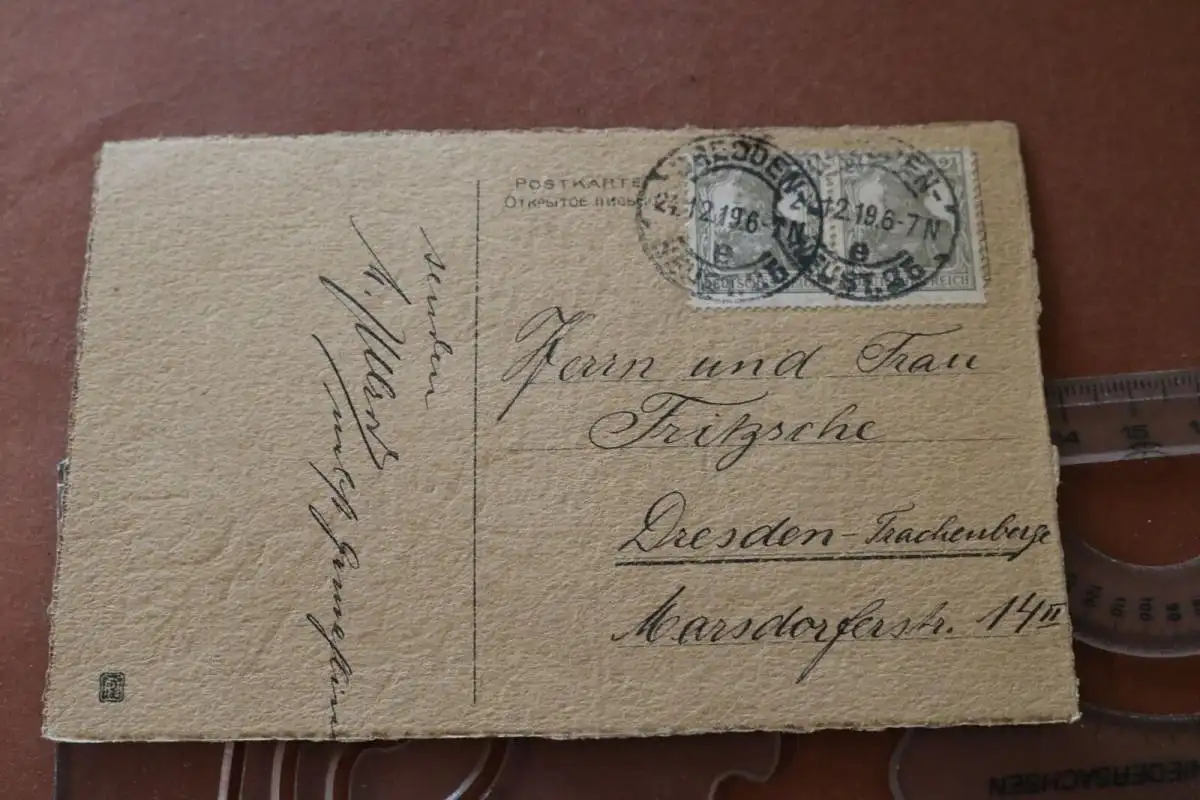 POSTKARTE
ОТКРЫТОЕ ПИСЬМО
DRESDEN-
24.12.19.6-7N
e
NEUST. 25
DRESDEN-
12.19.6-7N
e
NEUST. 25
DEUTSCHES
REICH
senden
Herrn und Frau
Fritzsche
Dresden-Trachenberge
Marsdorferstr. 14 II
14
15
NIEDERSACHSEN